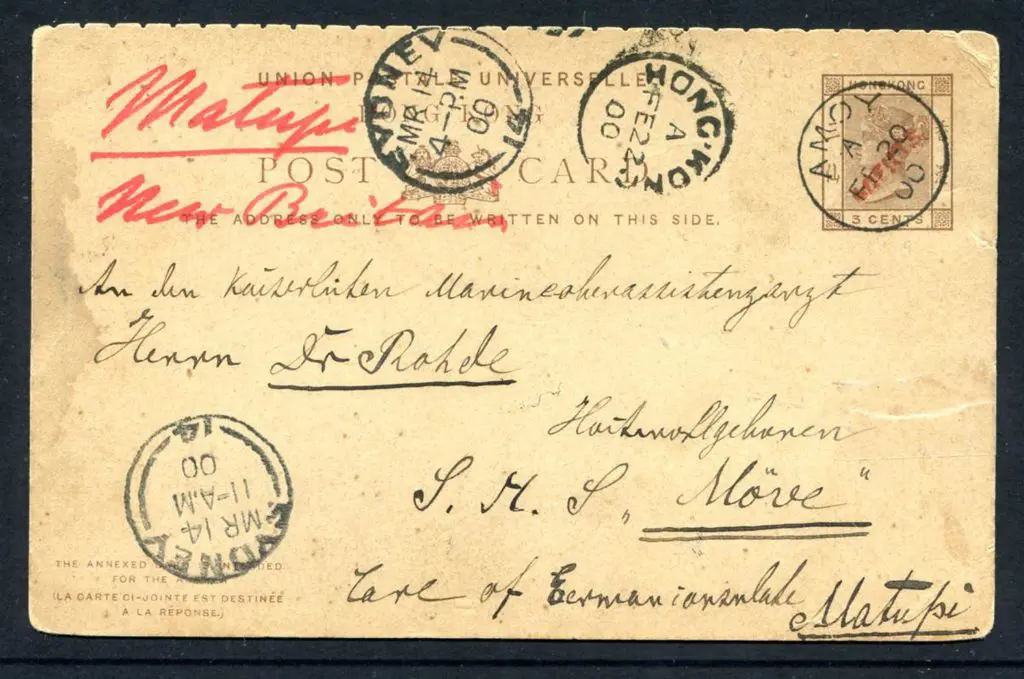 UNION POSTALE UNIVERSELLE
HONG KONG
POST CARD
THE ADDRESS ONLY TO BE WRITTEN ON THIS SIDE.
Matupi
New Britain
SYDNEY
MR 14
4-PM
00
14
HONG-KONG
A
FE 22
00
HONGKONG
3 CENTS
AMOY
A
FE 20
00
An den Kaiserlichen Marineoberassistenzarzt
Herrn Dr Rohde
Hochwohlgeboren
S. M. S „Möwe“
Care of Germanconsulate
Matupi
14
00
11-AM
MR 14
SYDNEY
THE ANNEXED
FOR THE
(LA CARTE CI-JOINTE EST DESTINÉE
A LA RÉPONSE.)